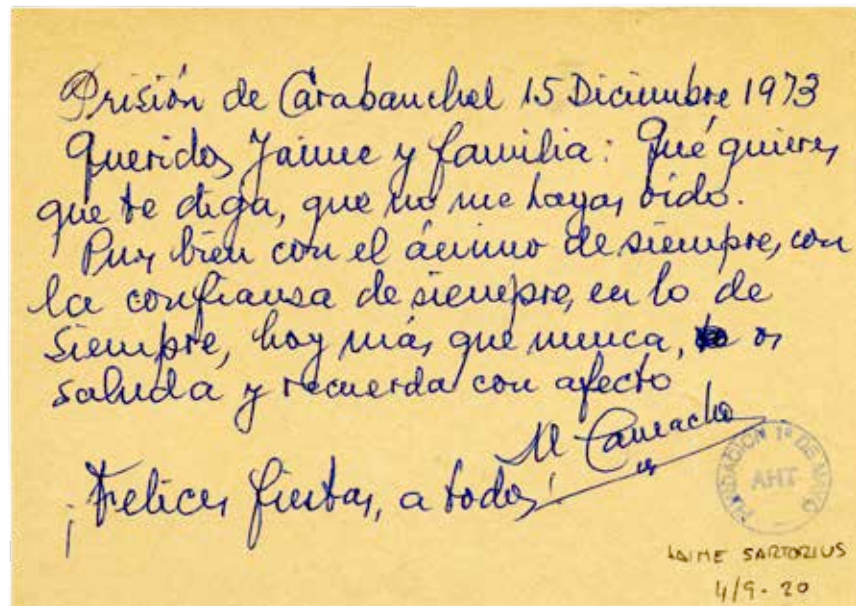 Prisión de Carabanchel 15 Diciembre 1973
Queridos Jaime y familia: Qué quieres
que te diga, que no me hayas oido.
Pues bien con el ánimo de siempre, con
la confiansa de siempre, en lo de
siempre, hoy más que nunca, os
saluda y recuerda con afecto
M Camacho
¡Felices fiestas, a todos!
FUNDACIÓN 1º DE MAYO
AHT
JAIME SARTORIUS
4/9-20